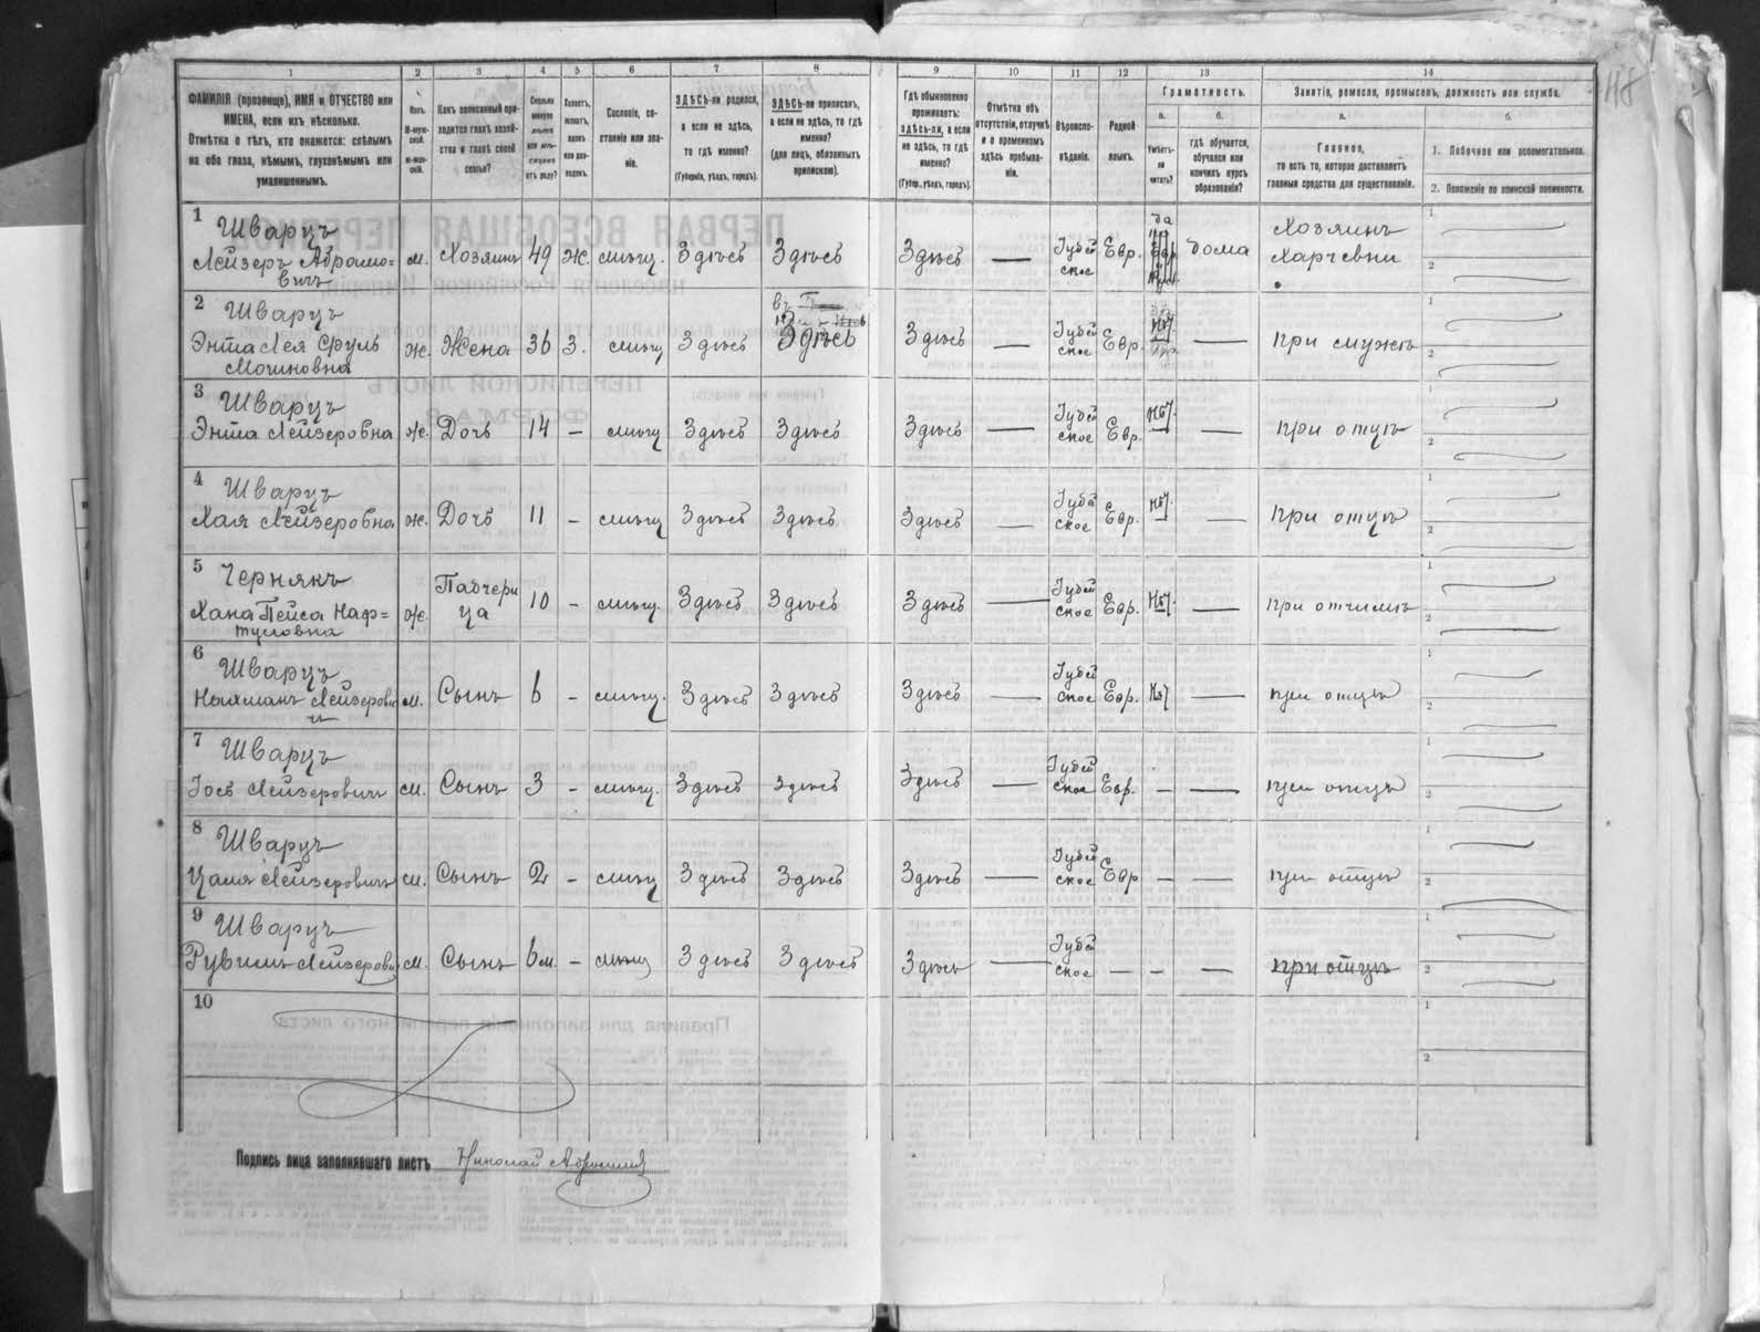 1 2 3 4 5 6 7 8 9 10 11 12 13 14
118
ФАМИЛІЯ (прозвище), ИМЯ и ОТЧЕСТВО или
ИМЕНА, если ихъ нѣсколько.
Отмѣтка о тѣхъ, кто окажется: слѣпымъ
на оба глаза, нѣмымъ, глухонѣмымъ или
умалишеннымъ.
Полъ.
М-муж-
ской.
Ж-жен-
скій.
Какъ записанный при-
ходится главѣ хозяй-
ства и главѣ своей
семьи?
Сколько
минуло
лѣтъ
или мѣ-
сяцевъ
отъ роду?
Холостъ,
женатъ,
вдовъ
или раз-
веденъ.
Сословіе, со-
стояніе или зва-
ніе.
ЗДѢСЬ-ли родился,
а если не здѣсь,
то гдѣ именно?
(Губернія, уѣздъ, городъ).
ЗДѢСЬ-ли приписанъ,
а если не здѣсь, то гдѣ
именно?
(для лицъ, обязанныхъ
припискою).
Гдѣ обыкновенно
проживаетъ:
здѣсь-ли, а если
не здѣсь, то гдѣ
именно?
(Губер., уѣздъ, городъ).
Отмѣтка объ
отсутствіи, отлучкѣ
и о временномъ
здѣсь пребыва-
ніи.
Вѣроиспо-
вѣданіе.
Родной
языкъ.
Грамотность.
а.
Умѣетъ-
ли
читать?
б.
гдѣ обучается,
обучался или
кончилъ курсъ
образованія?
Занятіе, ремесло, промыселъ, должность или служба.
а.
Главное,
то есть то, которое доставляетъ
главныя средства для существованія.
б.
1. Побочное или вспомогательное.
2. Положеніе по воинской повинности.
1 Шварцъ
Лейзеръ Абрамо=
вичъ
м. Хозяинъ 49 Ж. мѣщ. Здѣсь Здѣсь Здѣсь — Іудей
ское Евр. да
дома Хозяинъ
Харчевни
2 Шварцъ
Энта Лея Сруль
Мошковна
ж. Жена 36 З. мѣщ Здѣсь Здѣсь Здѣсь — Іудей
ское Евр. нѣт. — при мужѣ
3 Шварцъ
Энта Лейзеровна ж. Дочь 14 - мѣщ Здѣсь Здѣсь Здѣсь — Іудей
ское Евр. нѣт. — при отцѣ
4 Шварцъ
Хая Лейзеровна ж. Дочь 11 - мѣщ Здѣсь Здѣсь Здѣсь — Іудей
ское Евр. нѣт. — при отцѣ
5 Чернякъ
Хана Пейса Наф=
туловна
ж. Падчери
ца 10 - мѣщ. Здѣсь Здѣсь Здѣсь — Іудей
ское Евр. Нѣт. — при отчимѣ
6 Шварцъ
Нахманъ Лейзерови
ч
м. Сынъ 6 - мѣщ. Здѣсь Здѣсь Здѣсь — Іудей
ское Евр. Нѣт — при отцѣ
7 Шварцъ
Іось Лейзеровичъ м. Сынъ 3 - мѣщ. Здѣсь Здѣсь Здѣсь — Іудей
ское Евр. — — при отцѣ
8 Шварцъ
Лейзеровичъ м. Сынъ 2 - мѣщ Здѣсь Здѣсь Здѣсь — Іудей
ское Евр — — при отцѣ
9 Шварцъ
Рувинъ Лейзерови м. Сынъ 6 м. - мѣщ Здѣсь Здѣсь Здѣсь — Іудей
ское — — — при отцѣ
10
Подпись лица заполнявшаго листъ Николай